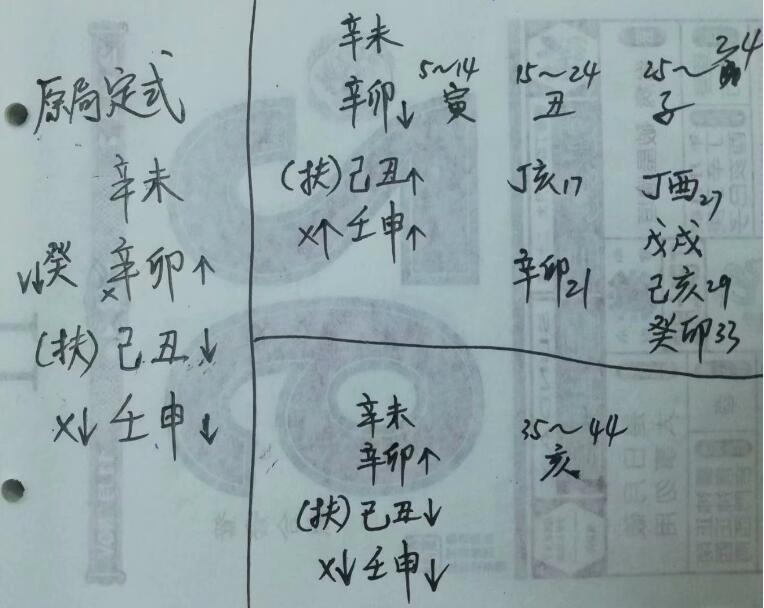 原局定式
辛未
√↓癸 ×辛卯↑
(扶)己丑↓
×↓壬申↓
辛未
辛卯↓
(扶)己丑↑
×↑壬申↑
5~14
寅
15~24
丑
丁亥17
辛卯21
25~34
子
丁酉27
戊戌
己亥29
癸卯33
辛未
辛卯↑
(扶)己丑↓
×↓壬申↓
35~44
亥